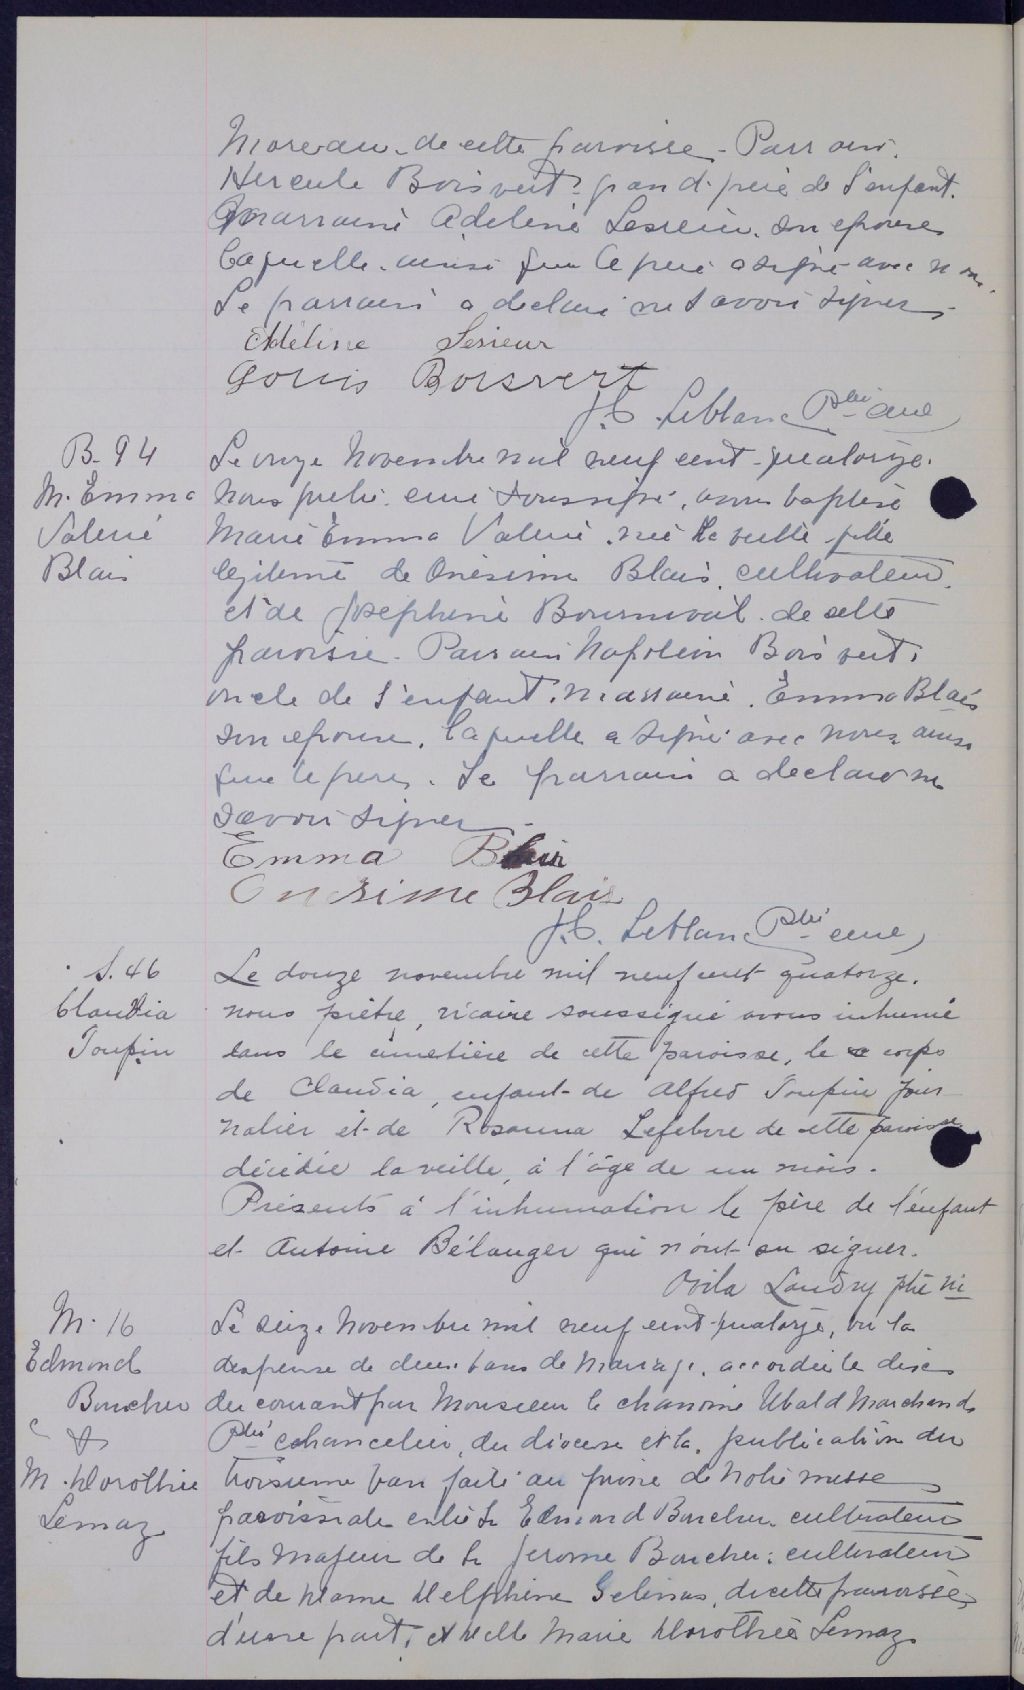 Moreau de cette paroisse - Parrain
Hercule Boisvert grand-père de l'enfant.
Marraine Adeline Lesieur son epouse
laquelle ainsi que le père a signé avec nous.
Le parrain a declaré ne savoir signer
Adéline Lesieur
Louis Boisvert
J. C. Leblanc Ptre curé
B. 94
M. Emma
Valerie
Blais
Le onze Novembre mil neuf cent-quatorze.
Nous prêtre curé soussigné, avons baptisé
Marie Emma Valerie née la veille fille
legitime de Onésime Blais cultivateur
et de Josephine Bournival de cette
paroisse - Parrain Napoléon Boisvert
oncle de l'enfant. Marraine Emma Blais
son epouse, laquelle a signé avec nous ainsi
que le père. Le parrain a declaré ne
savoir signer
Emma Blais
Onesime Blais
J. C. Leblanc Ptre curé
S. 46
Claudia
Toupin
Le douze novembre mil neuf cent quatorze,
nous prêtre, vicaire soussigné avons inhumé
dans le cimetière de cette paroisse, le corps
de Claudia, enfant de Alfred Toupin jour-
nalier et de Rosanna Lefebvre de cette paroisse
décédée la veille, à l'âge de un mois.
Présents à l'inhumation le père de l'enfant
et Antoine Bélanger qui n'ont su signer.
Ovila Landry ptre vic
M. 16
Edmond
Boucher
&
M. Dorothée
Lemay
Le seize Novembre mil neuf cent-quatorze, vu la
dispense de deux bans de mariage accordée le dix
du courant par Monsieur le chanoine Ubald Marchand
Ptre chancelier du diocese et la publication du
troisieme ban faite au prone de notre messe
paroissiale entre Sr Edmond Boucher cultivateur
fils majeur de Sr Jerome Boucher cultivateur
et de Dame Delphine Gelinas, de cette paroisse
d'une part, et Delle Marie Dorothée Lemay